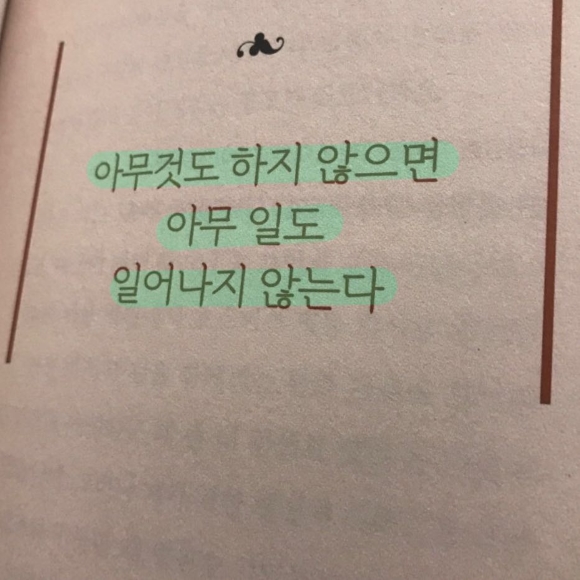 아무것도 하지 않으면
아무 일도
일어나지 않는다